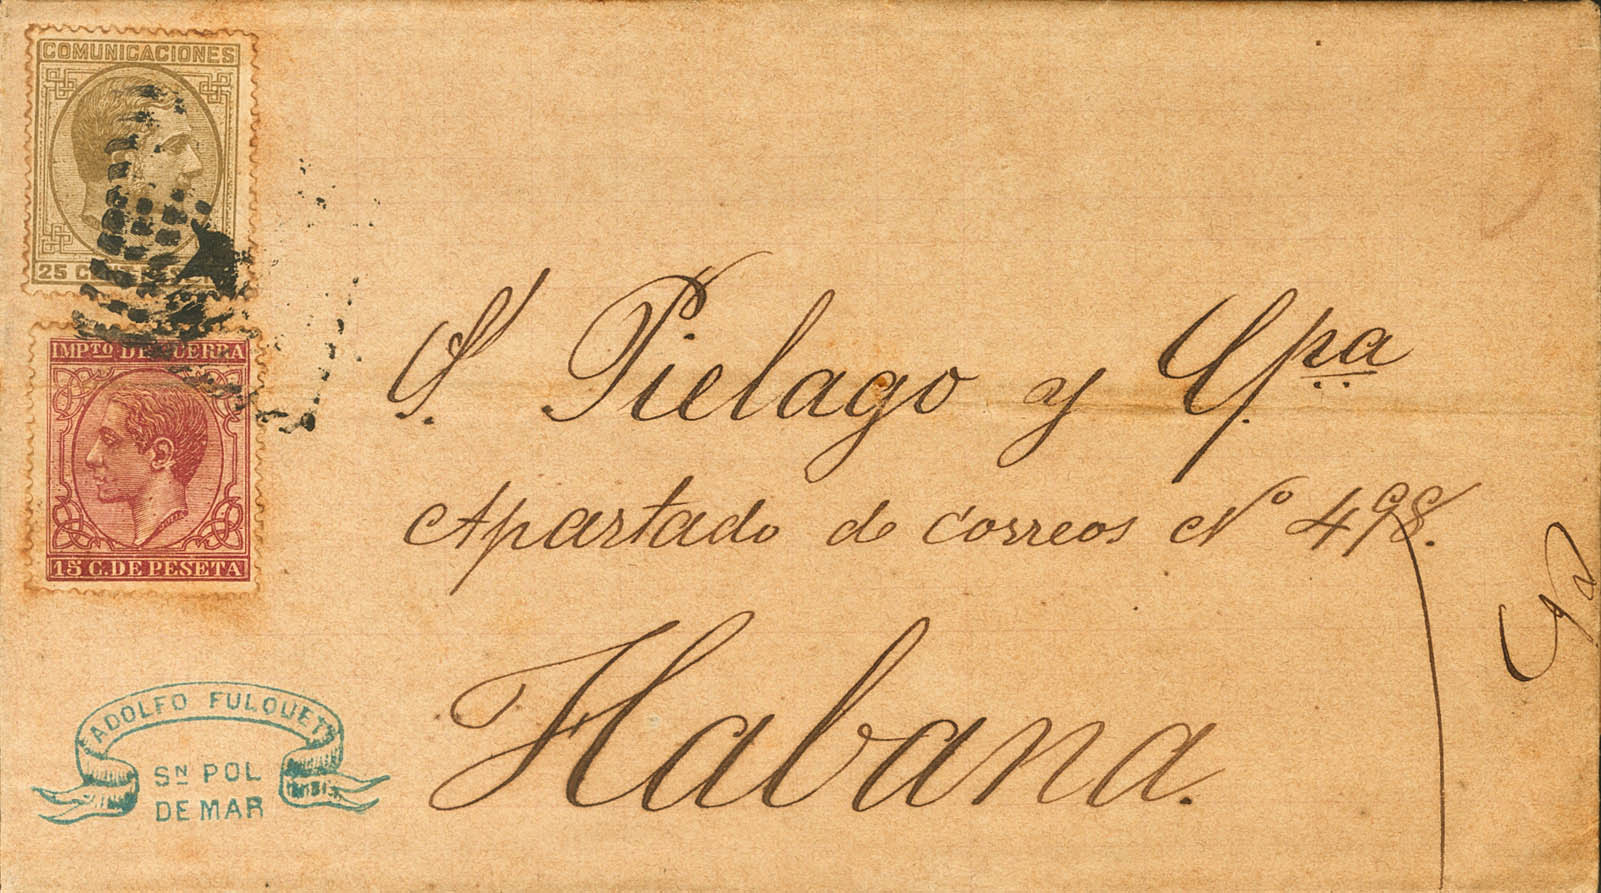 COMUNICACIONES
25 C
IMPTO DE GUERRA
15 C. DE PESETA
S. Pielago y Cpa
Apartado de Correos No 498.
Habana.
ADOLFO FULQUET
SN POL
DE MAR